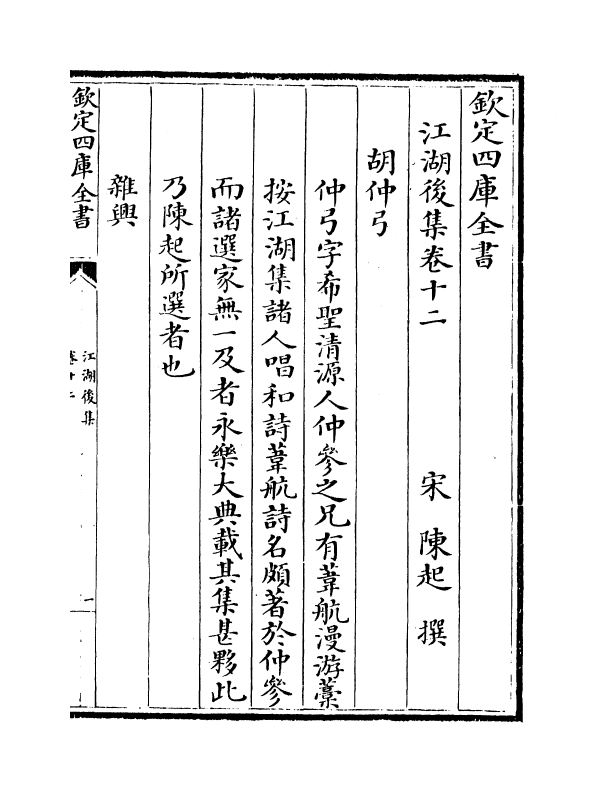 欽定四庫全書
江湖後集卷十二
宋 陳起 撰
胡仲弓
仲弓字希聖清源人仲參之兄有葦航漫游藁
按江湖集諸人唱和詩葦航詩名頗著於仲參
而諸選家無一及者永樂大典載其集甚夥此
乃陳起所選者也
雜興
欽定四庫全書
江湖後集
卷十二
一